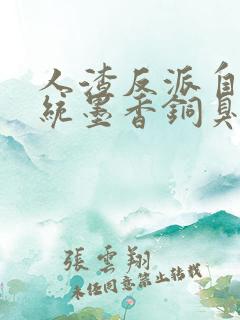 人渣反派自
統墨香銅臭
張雲翔
未經同意禁止轉載